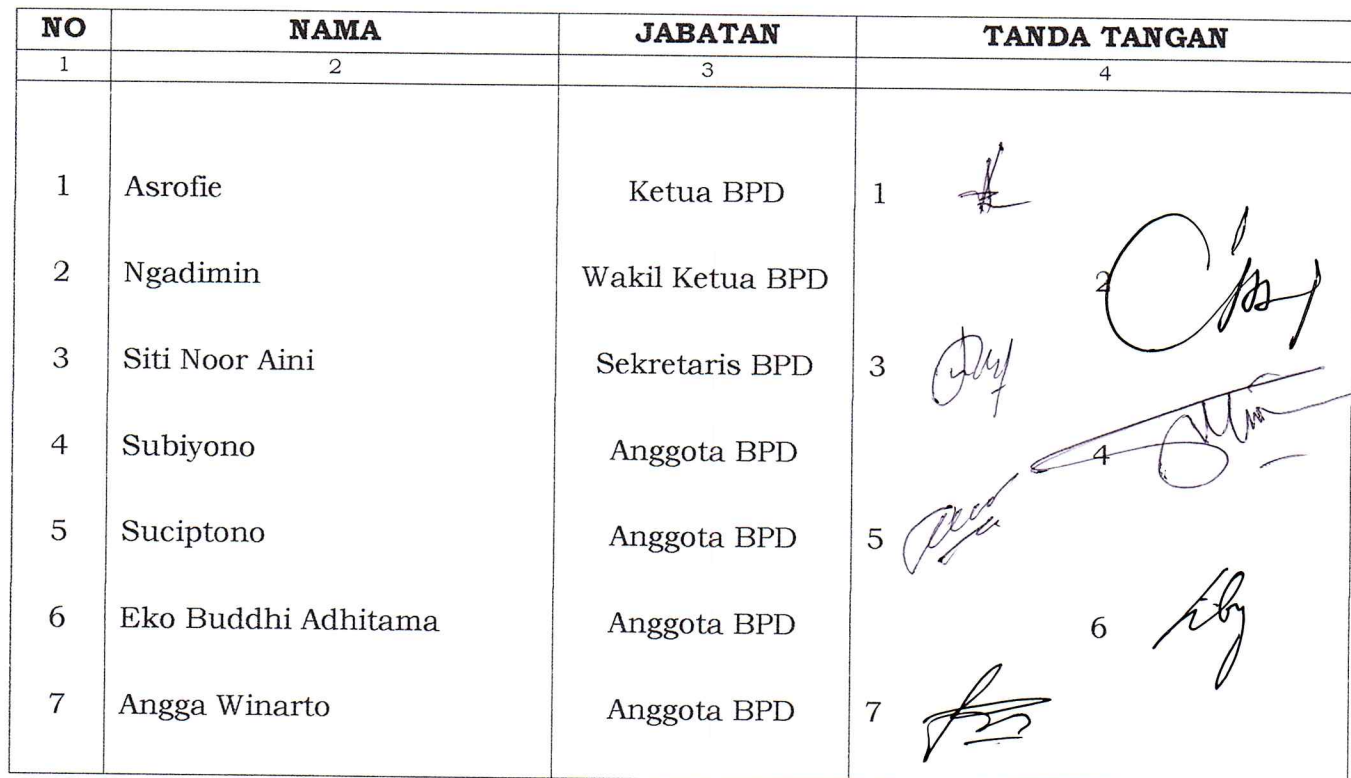 NO NAMA JABATAN TANDA TANGAN
1 2 3 4
1 Asrofie Ketua BPD 1
2 Ngadimin Wakil Ketua BPD 2
3 Siti Noor Aini Sekretaris BPD 3
4 Subiyono Anggota BPD 4
5 Suciptono Anggota BPD 5
6 Eko Buddhi Adhitama Anggota BPD 6
7 Angga Winarto Anggota BPD 7